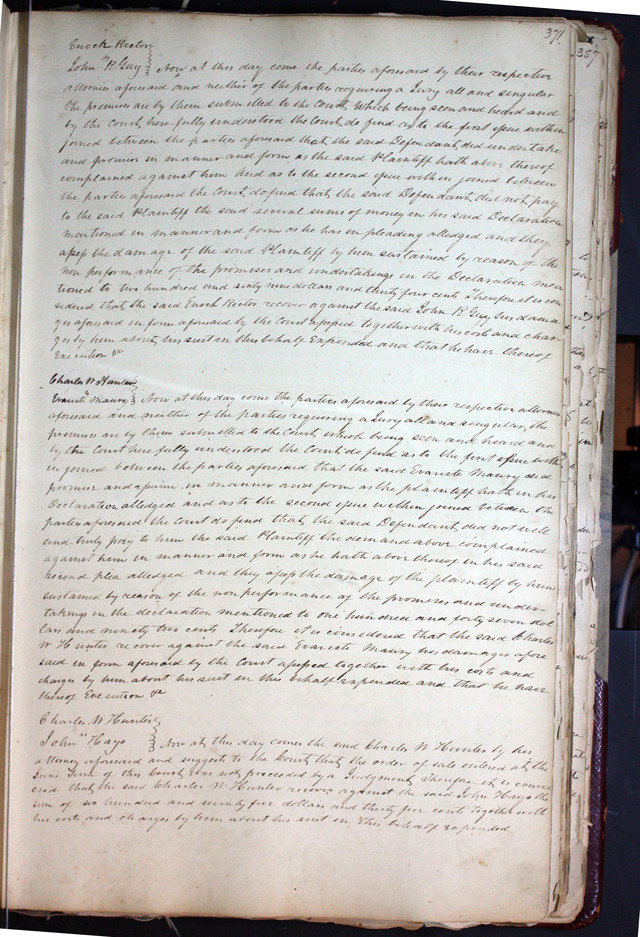 371.
357
Enoch Rector
John "R Guy } Now at this day come the parties aforesaid by their respective
attornies aforesaid and neither of the parties requiring a Jury all and singular
the premises are by them submitted to the Court, Which being seen and heard and
by the Court here fully understood the Court do find as to the first issue within
joined between the parties aforesaid that the said Defendant did undertake
and promise in manner and form as the said Plaintiff hath above thereof
complained against him And as to the second issue within joined between
the parties aforesaid the Court do find that the said Defendant did not pay
to the said Plaintiff the said several sums of money in his said Declaration
mentioned in manner and form as he has in pleading alledged and they
assess the damage of the said Plaintiff by him sustained by reason of the
non performance of the promises and undertakings in the Declaration men
tioned to two hundred and sixty nine dollars and thirty four cents Therefore it is con
sidered that the said Enoch Rector recover against the said John R Guy his dama
ges aforesaid in form aforesaid by the Court assessed together with his costs and char
ges by him about his suit in this behalf Expended and that he have thereof
Execution &c
Charles W Hunter
Evariste "Maury } Now at this day come the parties aforesaid by their respective attornies
aforesaid and neither of the parties requiring a Jury all and singular, the
premises are by them submitted to the Court, which being seen and heard and
by the Court here fully understood the Court do find as to the first issue with
in joined between the parties aforesaid that the said Evariste Maury did
promise and assume in manner and form as the plaintiff hath in his
Declaration alledged and as to the second issue within joined between the
parties aforesaid the Court do find that the said Defendant did not well
and truly pay to him the said Plaintiff the demand above complained
against him in manner and form as he hath above thereof in his said
second plea alledged and they assess the damage of the plaintiff by him
sustained by reason of the non performance of the promises and under-
takings in the declaration mentioned to one hundred and forty seven dol
lars and ninety two cents Therefore it is considered that the said Charles
W Hunter recover against the said Evariste Maury his damages afore
said in form aforesaid by the Court assessed together with his costs and
charges by him about his suit in this behalf expended and that he have
thereof Execution &c
Charles W Hunter
John "Hays } Now at this day comes the said Charles W Hunter by his
attorney aforesaid and suggests to the Court that the order of sale entered at the
June Term of this Court was not proceeded by a Judgment Therefore it is consid
ered that the said Charles W Hunter recover against the said John Hays the
sum of six hundred and seventy five dollars and thirty five cents together with
his costs and charges by him about his suit in this behalf expended